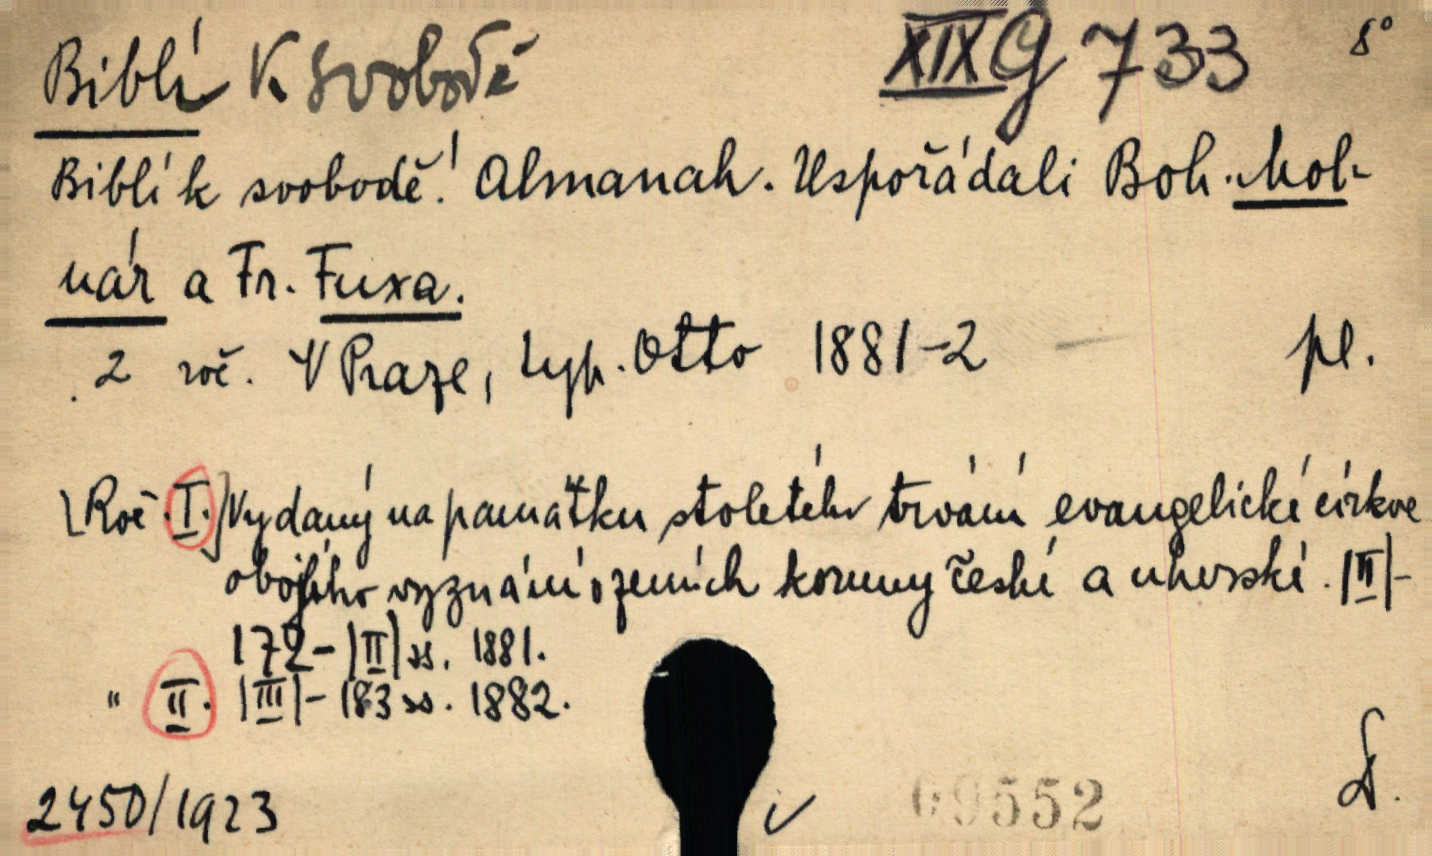 Biblí K svobodě XIX G 733 8°
Biblí k svobodě! Almanah. Uspořádali Boh. Mol-
nár a Fr. Fuxa.
2 roč. V Praze, typ. Otto 1881-2 pl.
[Roč. I.] Vydaný na památku stoletého trvání evangelické církve
obojího vyznání v zemích koruny české a uherské. |II|-
172-|II| ss. 1881.
" II. |III|-183 ss. 1882.
2450/1923 69552